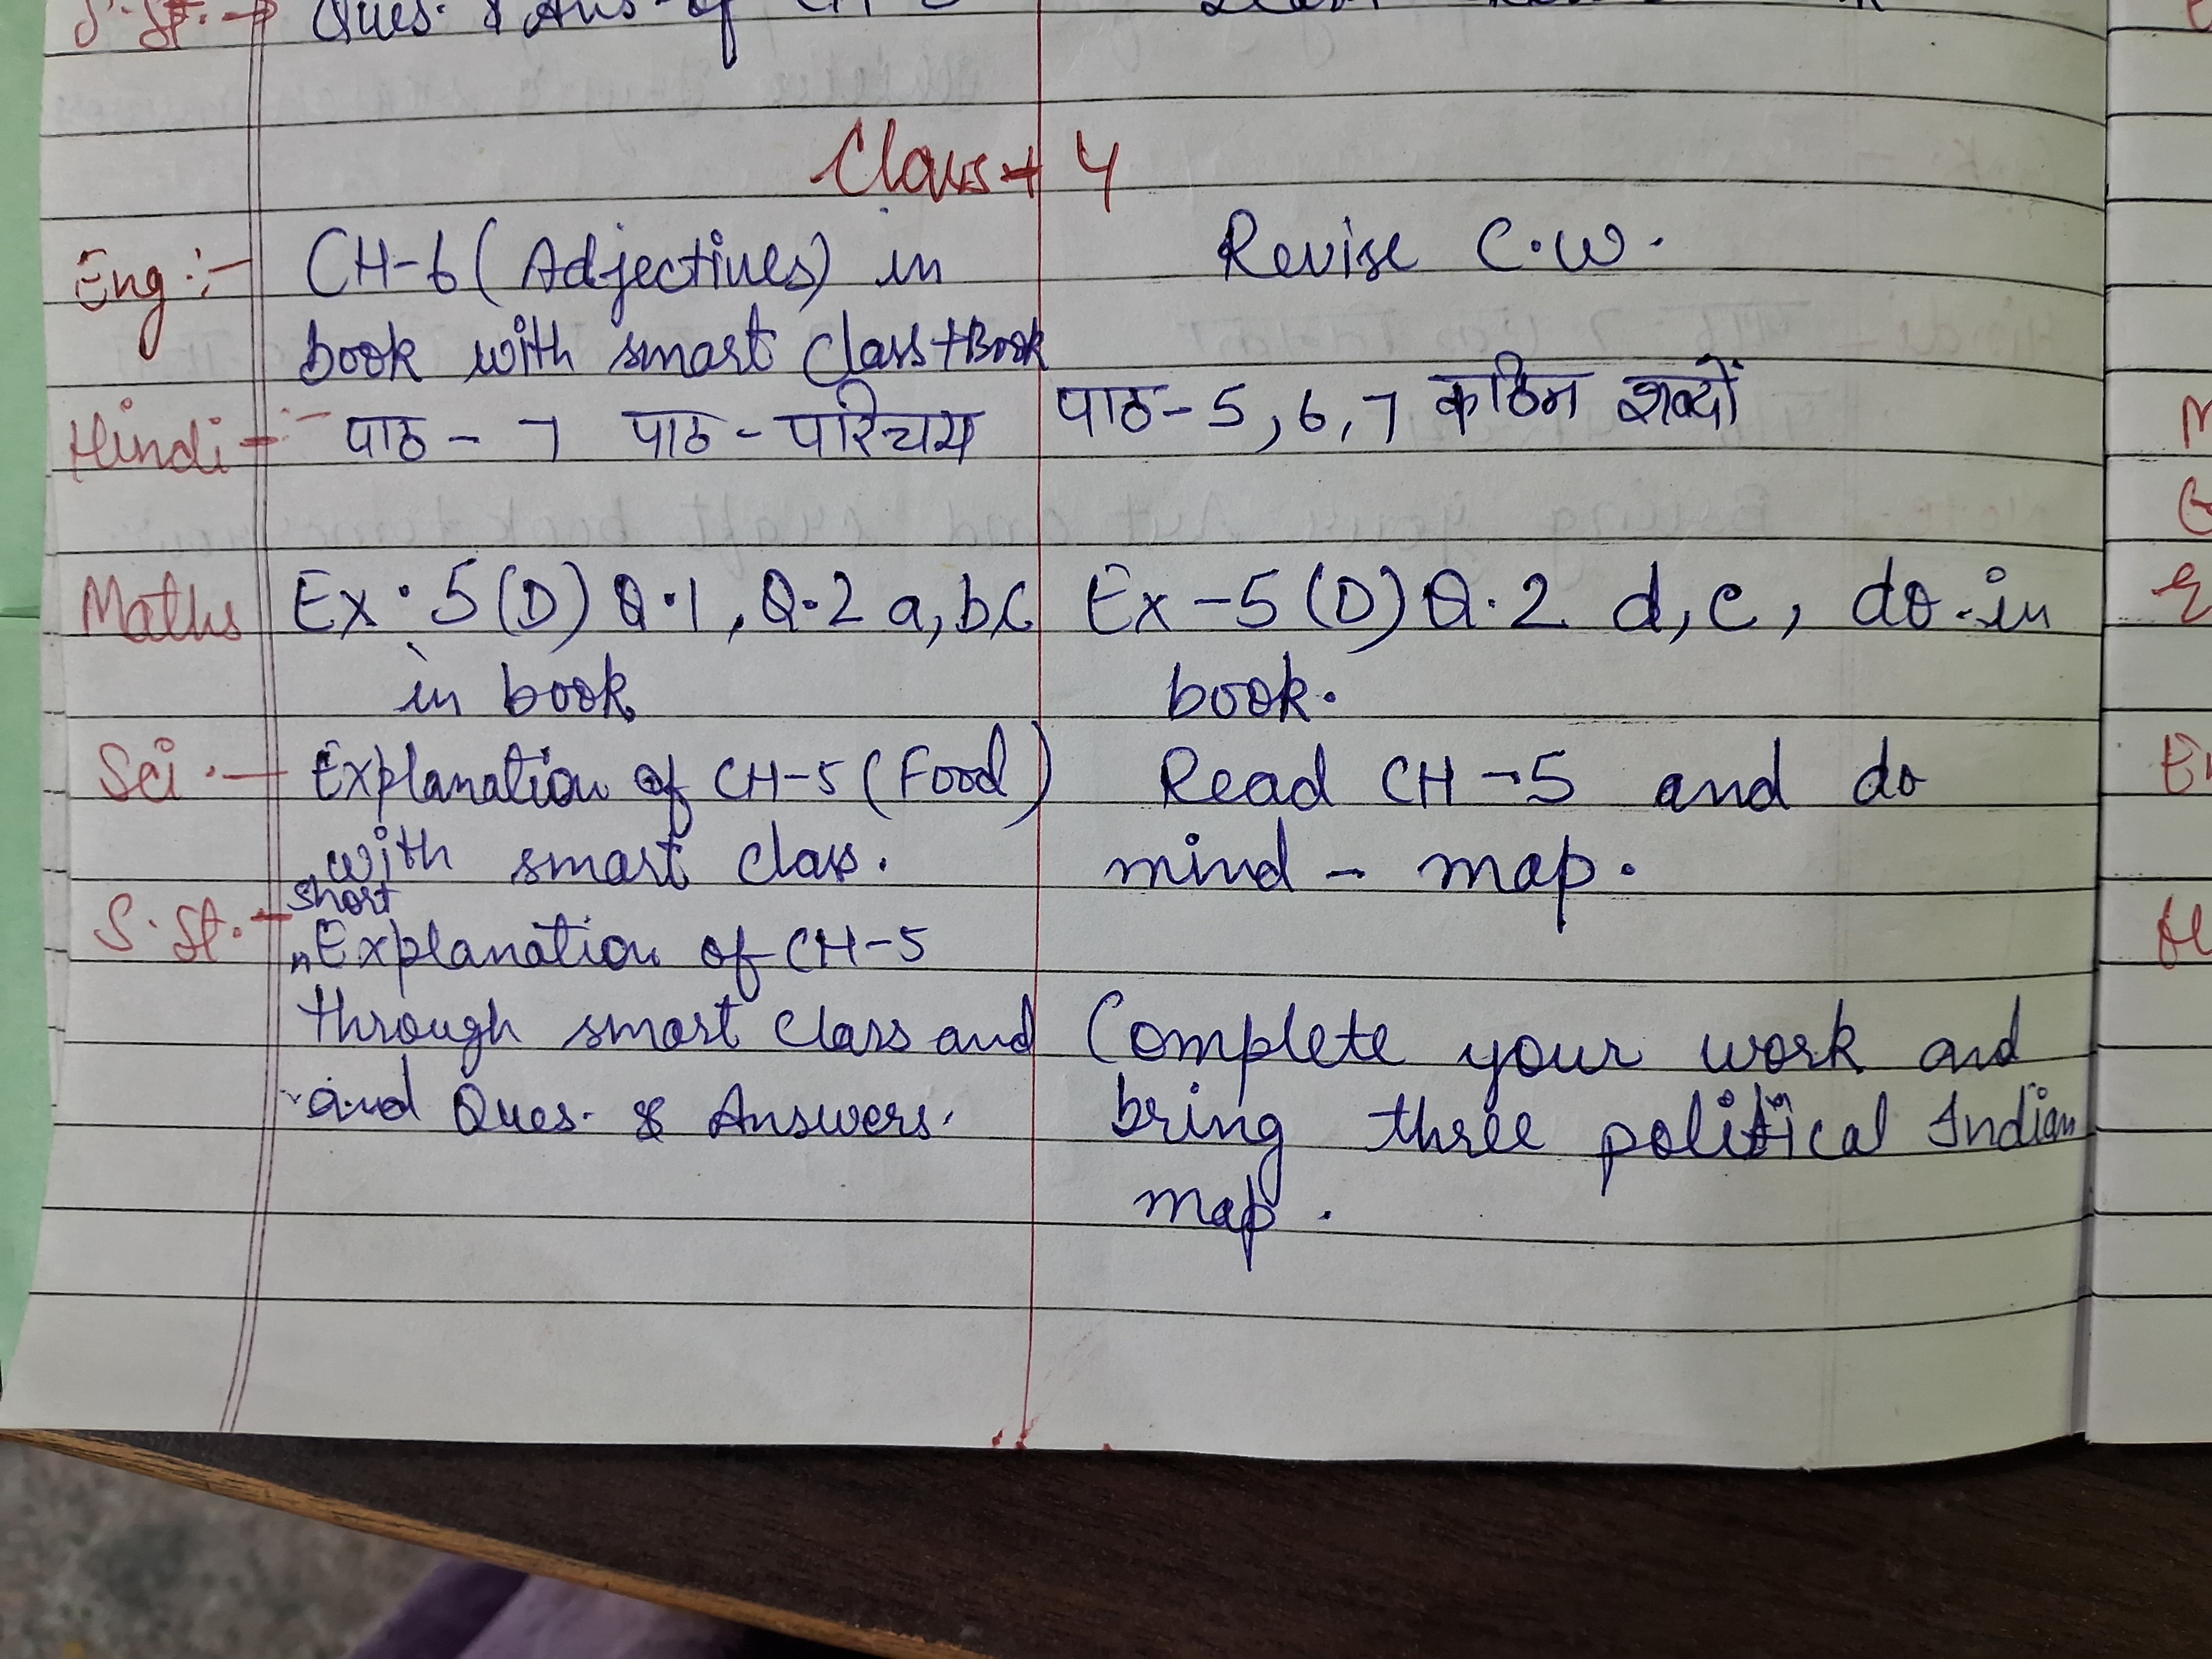 S.St. → Ques. & Ans. of CH-
Class → 4
Eng :- CH-6 (Adjectives) in Revise C.W.
book with smart class + Book
Hindi :- पाठ - 7 पाठ - परिचय पाठ - 5, 6, 7 कठिन शब्दों
Maths Ex. 5 (D) Q.1, Q.2 a, b, c Ex - 5 (D) Q.2 d, e, do in
in book book.
Sci :- Explanation of CH-5 (Food) Read CH-5 and do
with smart class. mind - map.
S.St. - short Explanation of CH-5
through smart class and Complete your work and
and Ques. & Answers. bring three political Indian
map.